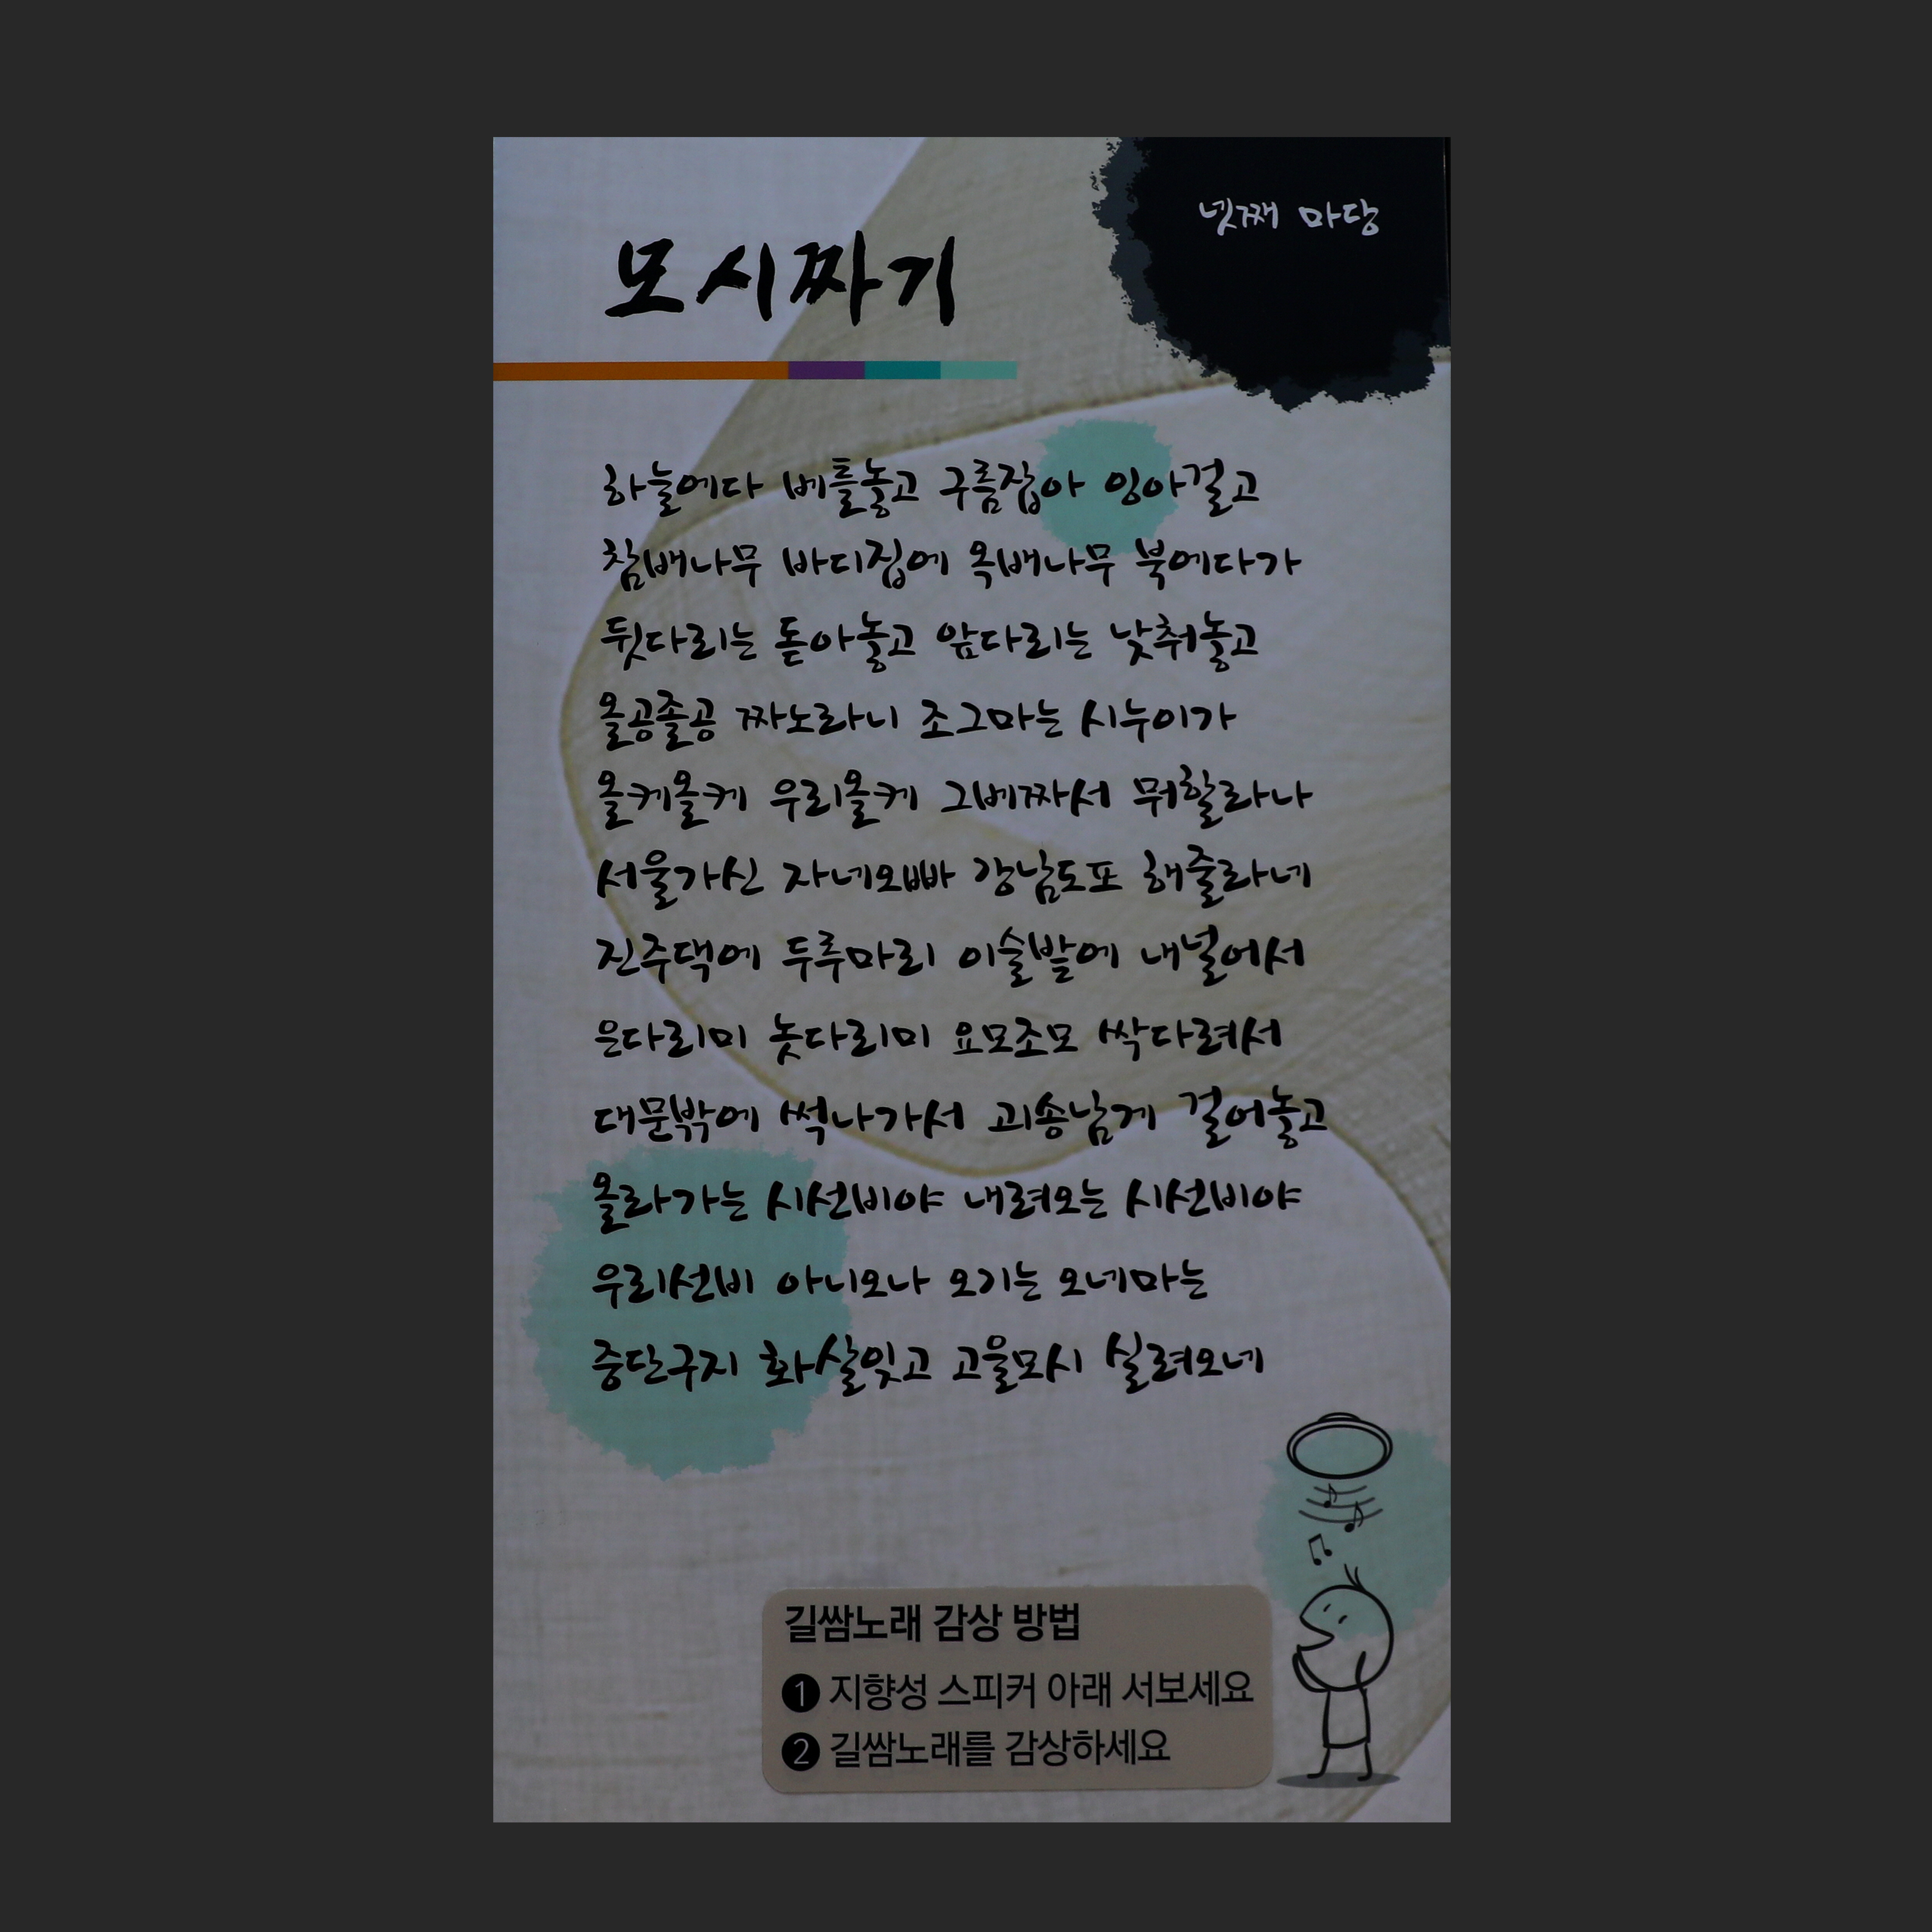 넷째 마당
모시짜기
하늘에다 베틀놓고 구름잡아 잉아걸고
참배나무 바디집에 옥배나무 북에다가
뒷다리는 돋아놓고 앞다리는 낮춰놓고
올공졸공 짜노라니 조그마는 시누이가
올케올케 우리올케 그베짜서 뭐할라나
서울가신 자네오빠 강남도포 해줄라네
진주댁에 두루마리 이술밭에 내널어서
은다리미 놋다리미 요모조모 싹다려서
대문밖에 썩나가서 괴송남게 걸어놓고
올라가는 시선비야 내려오는 시선비야
우리선비 아니오나 오기는 오네마는
중단구지 화살잊고 고울모시 실려오네
길쌈노래 감상 방법
1 지향성 스피커 아래 서보세요
2 길쌈노래를 감상하세요